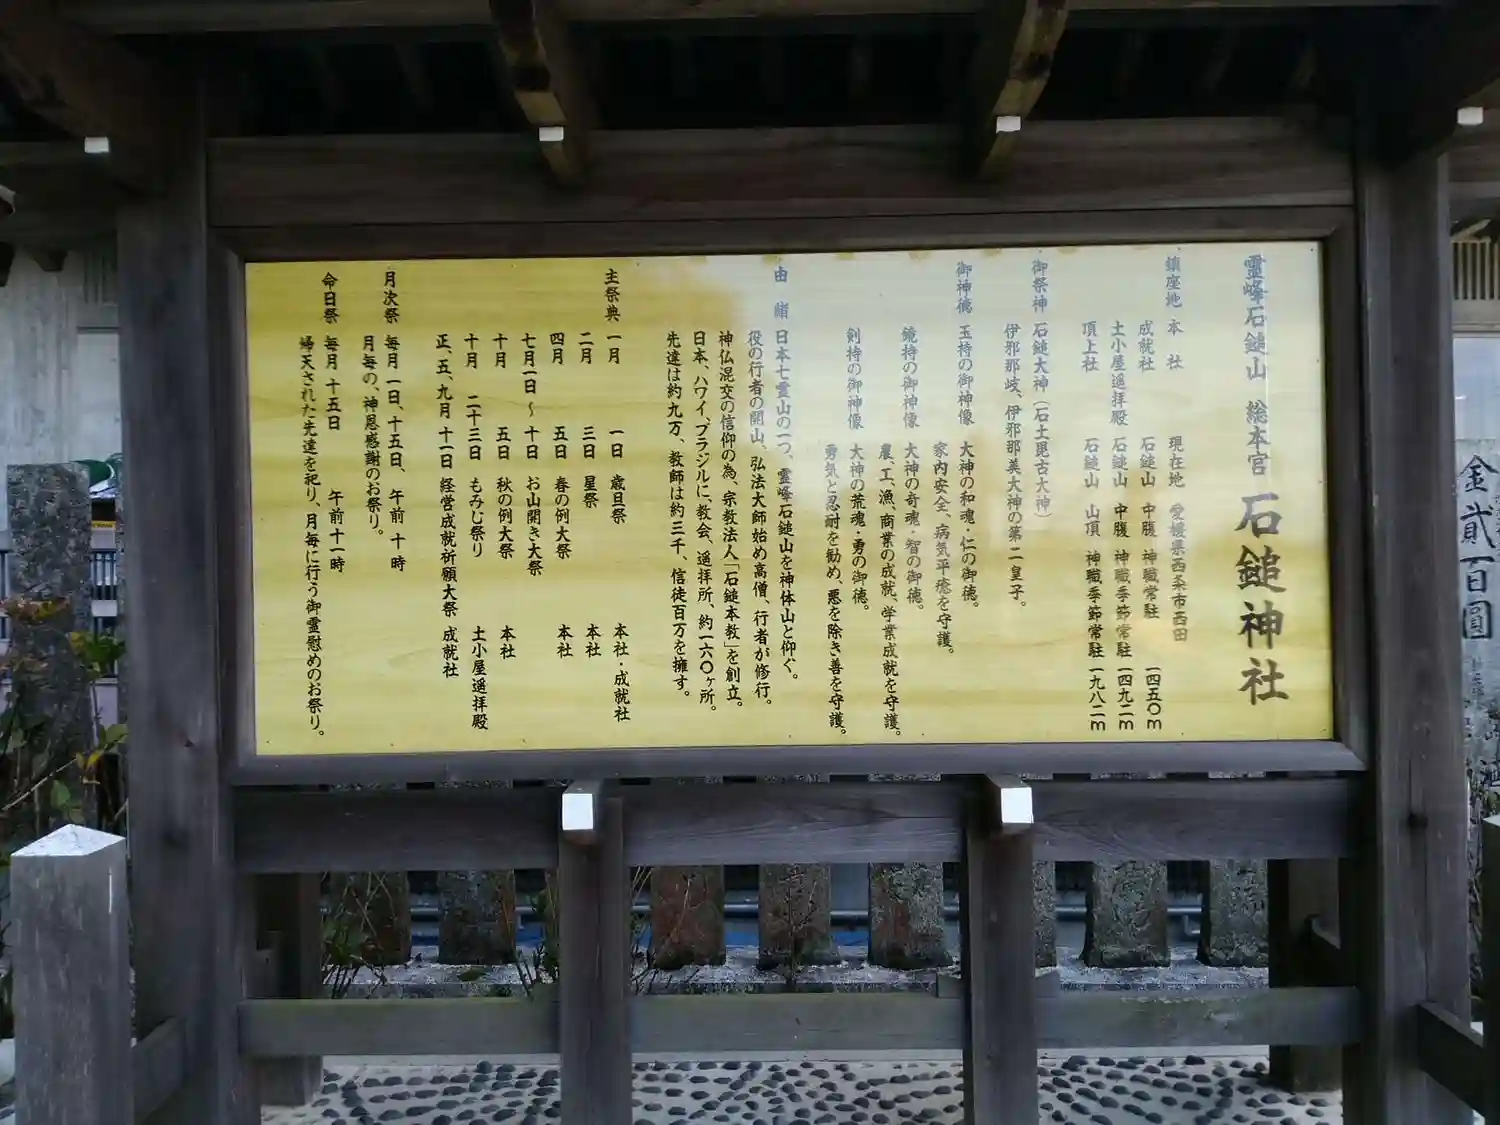 霊峰石鎚山 総本宮 石鎚神社
鎮座地 本 社 現在地 愛媛県西条市西田
成就社 石鎚山 中腹 神職常駐 一四五〇m
土小屋遥拝殿 石鎚山 中腹 神職季節常駐 一四九二m
頂上社 石鎚山 山頂 神職季節常駐 一九八二m
御祭神 石鎚大神（石土毘古大神）
伊邪那岐、伊邪那美大神の第二皇子。
御神徳 玉持の御神像 大神の和魂・仁の御徳。
家内安全、病気平癒を守護。
鏡持の御神像 大神の奇魂・智の御徳。
農、工、漁、商業の成就、学業成就を守護。
剣持の御神像 大神の荒魂・勇の御徳。
勇気と忍耐を勧め、悪を除き善を守護。
由 緒 日本七霊山の一つ、霊峰石鎚山を神体山と仰ぐ。
役の行者の開山、弘法大師始め高僧、行者が修行。
神仏混交の信仰の為、宗教法人「石鎚本教」を創立。
日本、ハワイ、ブラジルに、教会、遥拝所、約一六〇ヶ所。
先達は約九万、教師は約三千、信徒百万を擁す。
主祭典 一月 一日 歳旦祭 本社・成就社
二月 三日 星祭 本社
四月 五日 春の例大祭 本社
七月一日～十日 お山開き大祭
十月 五日 秋の例大祭 本社
十月 二十三日 もみじ祭り 土小屋遥拝殿
正、五、九月 十一日 経営成就祈願大祭 成就社
月次祭 毎月 一日、十五日、 午前 十時
月毎の、神恩感謝のお祭り。
命日祭 毎月 十五日 午前十一時
帰天された先達を祀り、月毎に行う御霊慰めのお祭り。
金貳百圓